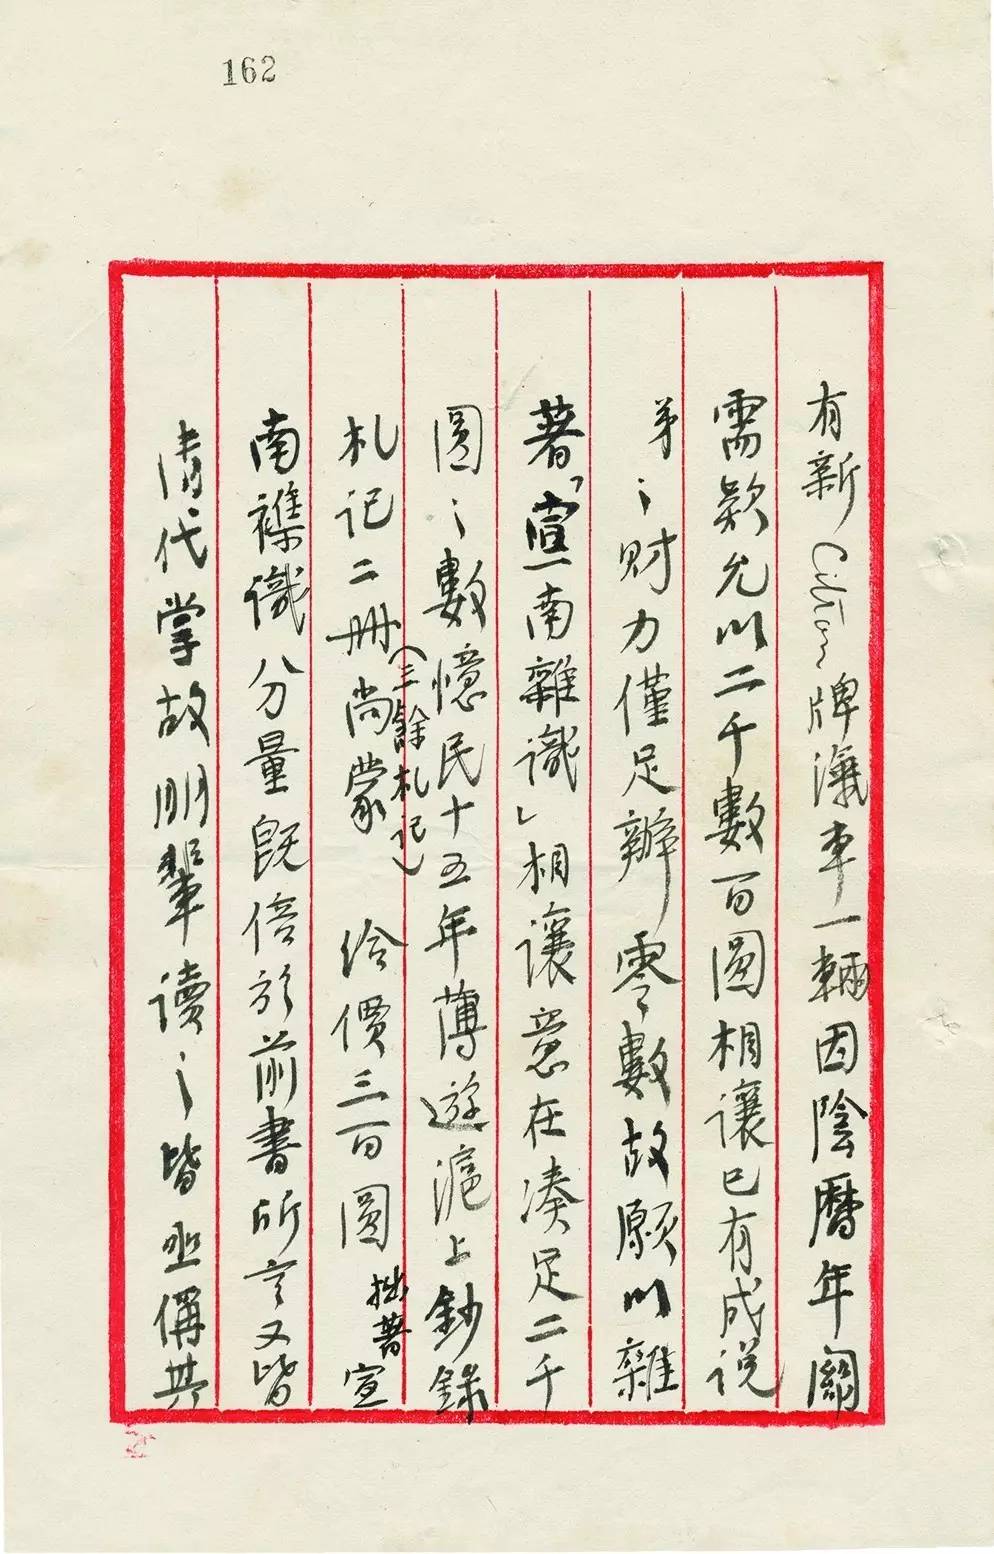 162
有新Citroen牌汽車一輛因陰曆年關
需款允以二千數百圓相讓已有成说
弟之財力僅足辦零數故願以雜
著「宣南雜識」相讓意在湊足二千
圓之數憶民十五年薄遊滬上鈔錄
札记二冊(三餘札记)尚蒙 给價三百圓拙著宣
南襍識分量既倍於前書所言又皆
清代掌故朋輩讀之皆亟偁其